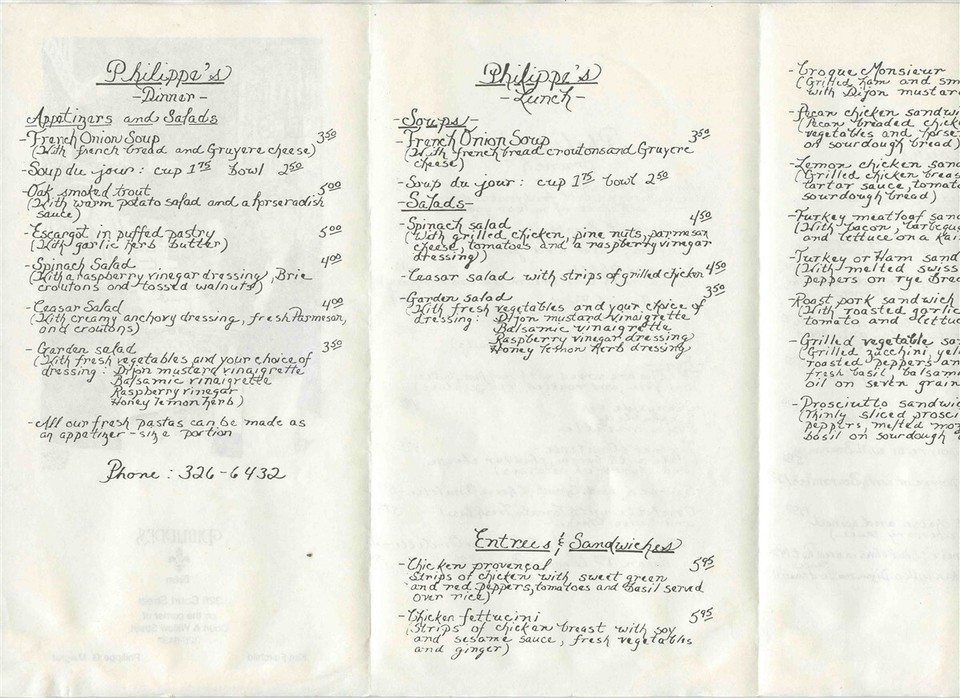 Philippe's
-Dinner-
Appitizers and Salads
-French Onion Soup 3.50
(With french bread and Gruyere cheese)
-Soup du jour: cup 1.75 bowl 2.50
Oak smoked trout 5.00
(With warm potato salad and a horseradish
sauce)
-Escargot in puffed pastry 5.00
(With garlic herb butter)
-Spinach Salad 4.00
(With a raspberry vinegar dressing, Brie
croutons and tossed walnuts)
-Ceasar Salad 4.00
(With creamy anchovy dressing, fresh Parmesan,
and croutons)
-Garden salad 3.50
(With fresh vegetables and your choice of
dressing: Dijon mustard vinaigrette
Balsamic vinaigrette
Raspberry vinegar
Honey lemon herb)
-All our fresh pastas can be made as
an appetizer-size portion
Phone: 326-6432
Philippe's
-Lunch-
-Soups-
-French Onion Soup 3.50
(With french bread croutons and Gruyere
cheese)
-Soup du jour: cup 1.75 bowl 2.50
-Salads-
-Spinach salad 4.50
(With grilled chicken, pine nuts, parmesan
cheese, tomatoes and a raspberry vinegar
dressing)
-Ceasar salad with strips of grilled chicken 4.50
-Garden salad 3.50
(With fresh vegetables and your choice of
dressing: Dijon mustard vinaigrette
Balsamic vinaigrette
Raspberry vinegar dressing
Honey lemon herb dressing
Entrees & Sandwiches
-Chicken provençal 5.95
Strips of chicken with sweet green
and red peppers, tomatoes and basil served
over rice)
-Chicken fettucini 5.95
(Strips of chicken breast with soy
and sesame sauce, fresh vegetables
and ginger)
-Croque Monsieur
(Grilled ham and
with Dijon mustar
-Pecan chicken sandwi
(Pecan breaded chick
vegetables and horse
on sourdough bread)
-Lemon chicken san
(Grilled chicken breas
tartar sauce, tomato
sourdough bread)
-Turkey meatloaf san
(With bacon, barbequ
and lettuce on a
-Turkey or Ham sand
(With melted swiss
peppers on rye brea
-Roast pork sandwich
(With roasted garlic
tomato and lettuc
-Grilled vegetable sa
(Grilled zucchini, yel
roasted peppers an
fresh basil, balsami
oil on seven grain
-Prosciutto sandwic
(Thinly sliced prosci
peppers, melted moz
basil on sourdough